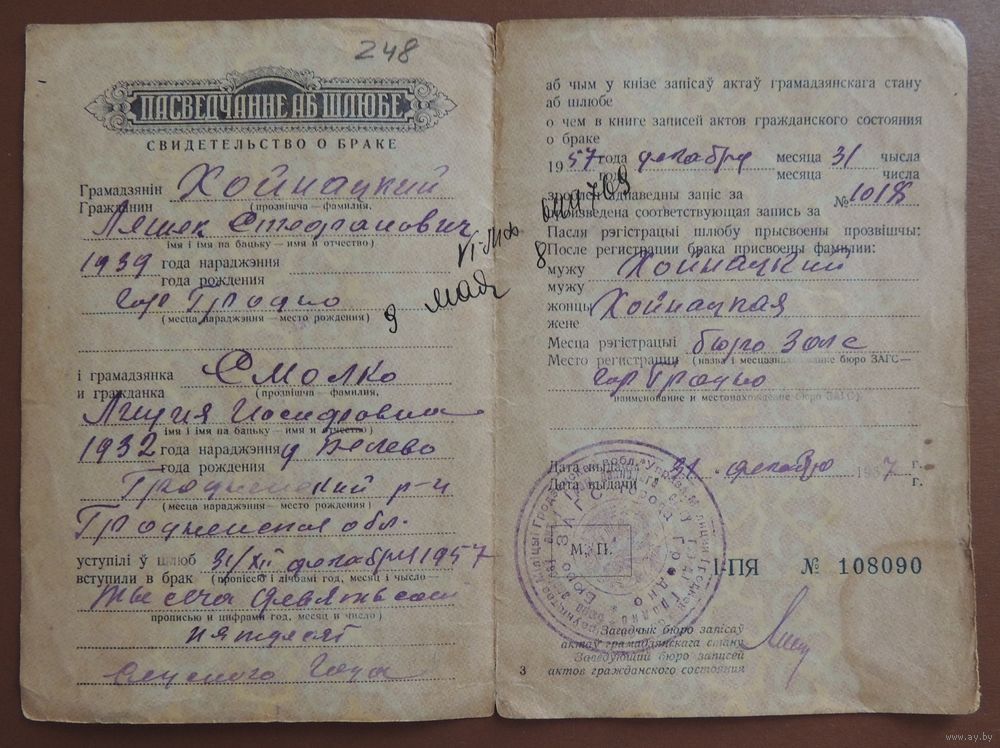 248
ПАСВЕДЧАННЕ АБ ШЛЮБЕ
СВИДЕТЕЛЬСТВО О БРАКЕ
Грамадзянін Хойнацкий
Гражданин (прозвішча — фамилия,
Ляшек Стефанович
імя і імя па бацьку — имя и отчество)
1939 года нараджэння
года рождения
гор Гродно
(месца нараджэння — место рождения)
і грамадзянка Смолко
и гражданка (прозвішча — фамилия,
Лидия Иосифовна
імя і імя па бацьку — имя и отчество)
1932 года нараджэння д
года рождения
Гродненский р-н
(месца нараджэння — место рождения)
Гродненская обл.
уступілі ў шлюб 31/XII декабря 1957
вступили в брак (прописсю і лічбамі год, месяц і чысло—
тысяча девятьсот
прописью и цифрами год, месяц и число)
пятдесят
седьмого года
9 мая
аб чым у кнізе запісаў актаў грамадзянскага стану
аб шлюбе
о чем в книге записей актов гражданского состояния
о браке
1957 года декабря месяца 31 чысла
года месяца числа
зроблен адпаведны запіс за № 1018
произведена соответствующая запись за
Пасля рэгістрацыі шлюбу прысвоены прозвішчы:
После регистрации брака присвоены фамилии:
мужу Хойнацкий
мужу
жонцы Хойнацкая
жене
Месца рэгістрацыі бюро Загс
Место регистрации (назва і месцазнаходжанне бюро ЗАГС—
гор Гродно
наименование и местонахождение бюро ЗАГС)
Дата выдачы 31 декабрю 1957 г.
Дата выдачи г.
М. П.
І-ПЯ № 108090
Загадчык бюро запісаў
актаў грамадзянскага стану
Заведующий бюро записей
3 актов гражданского состояния
www.ay.by